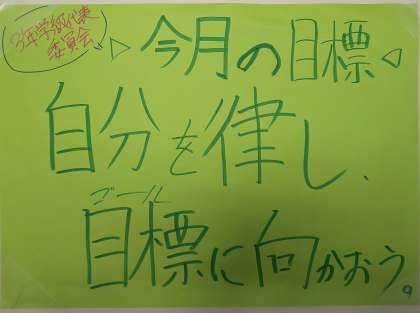 3年学級代表
委員会
今月の目標
自分を律し、
ゴール
目標に向かおう
9